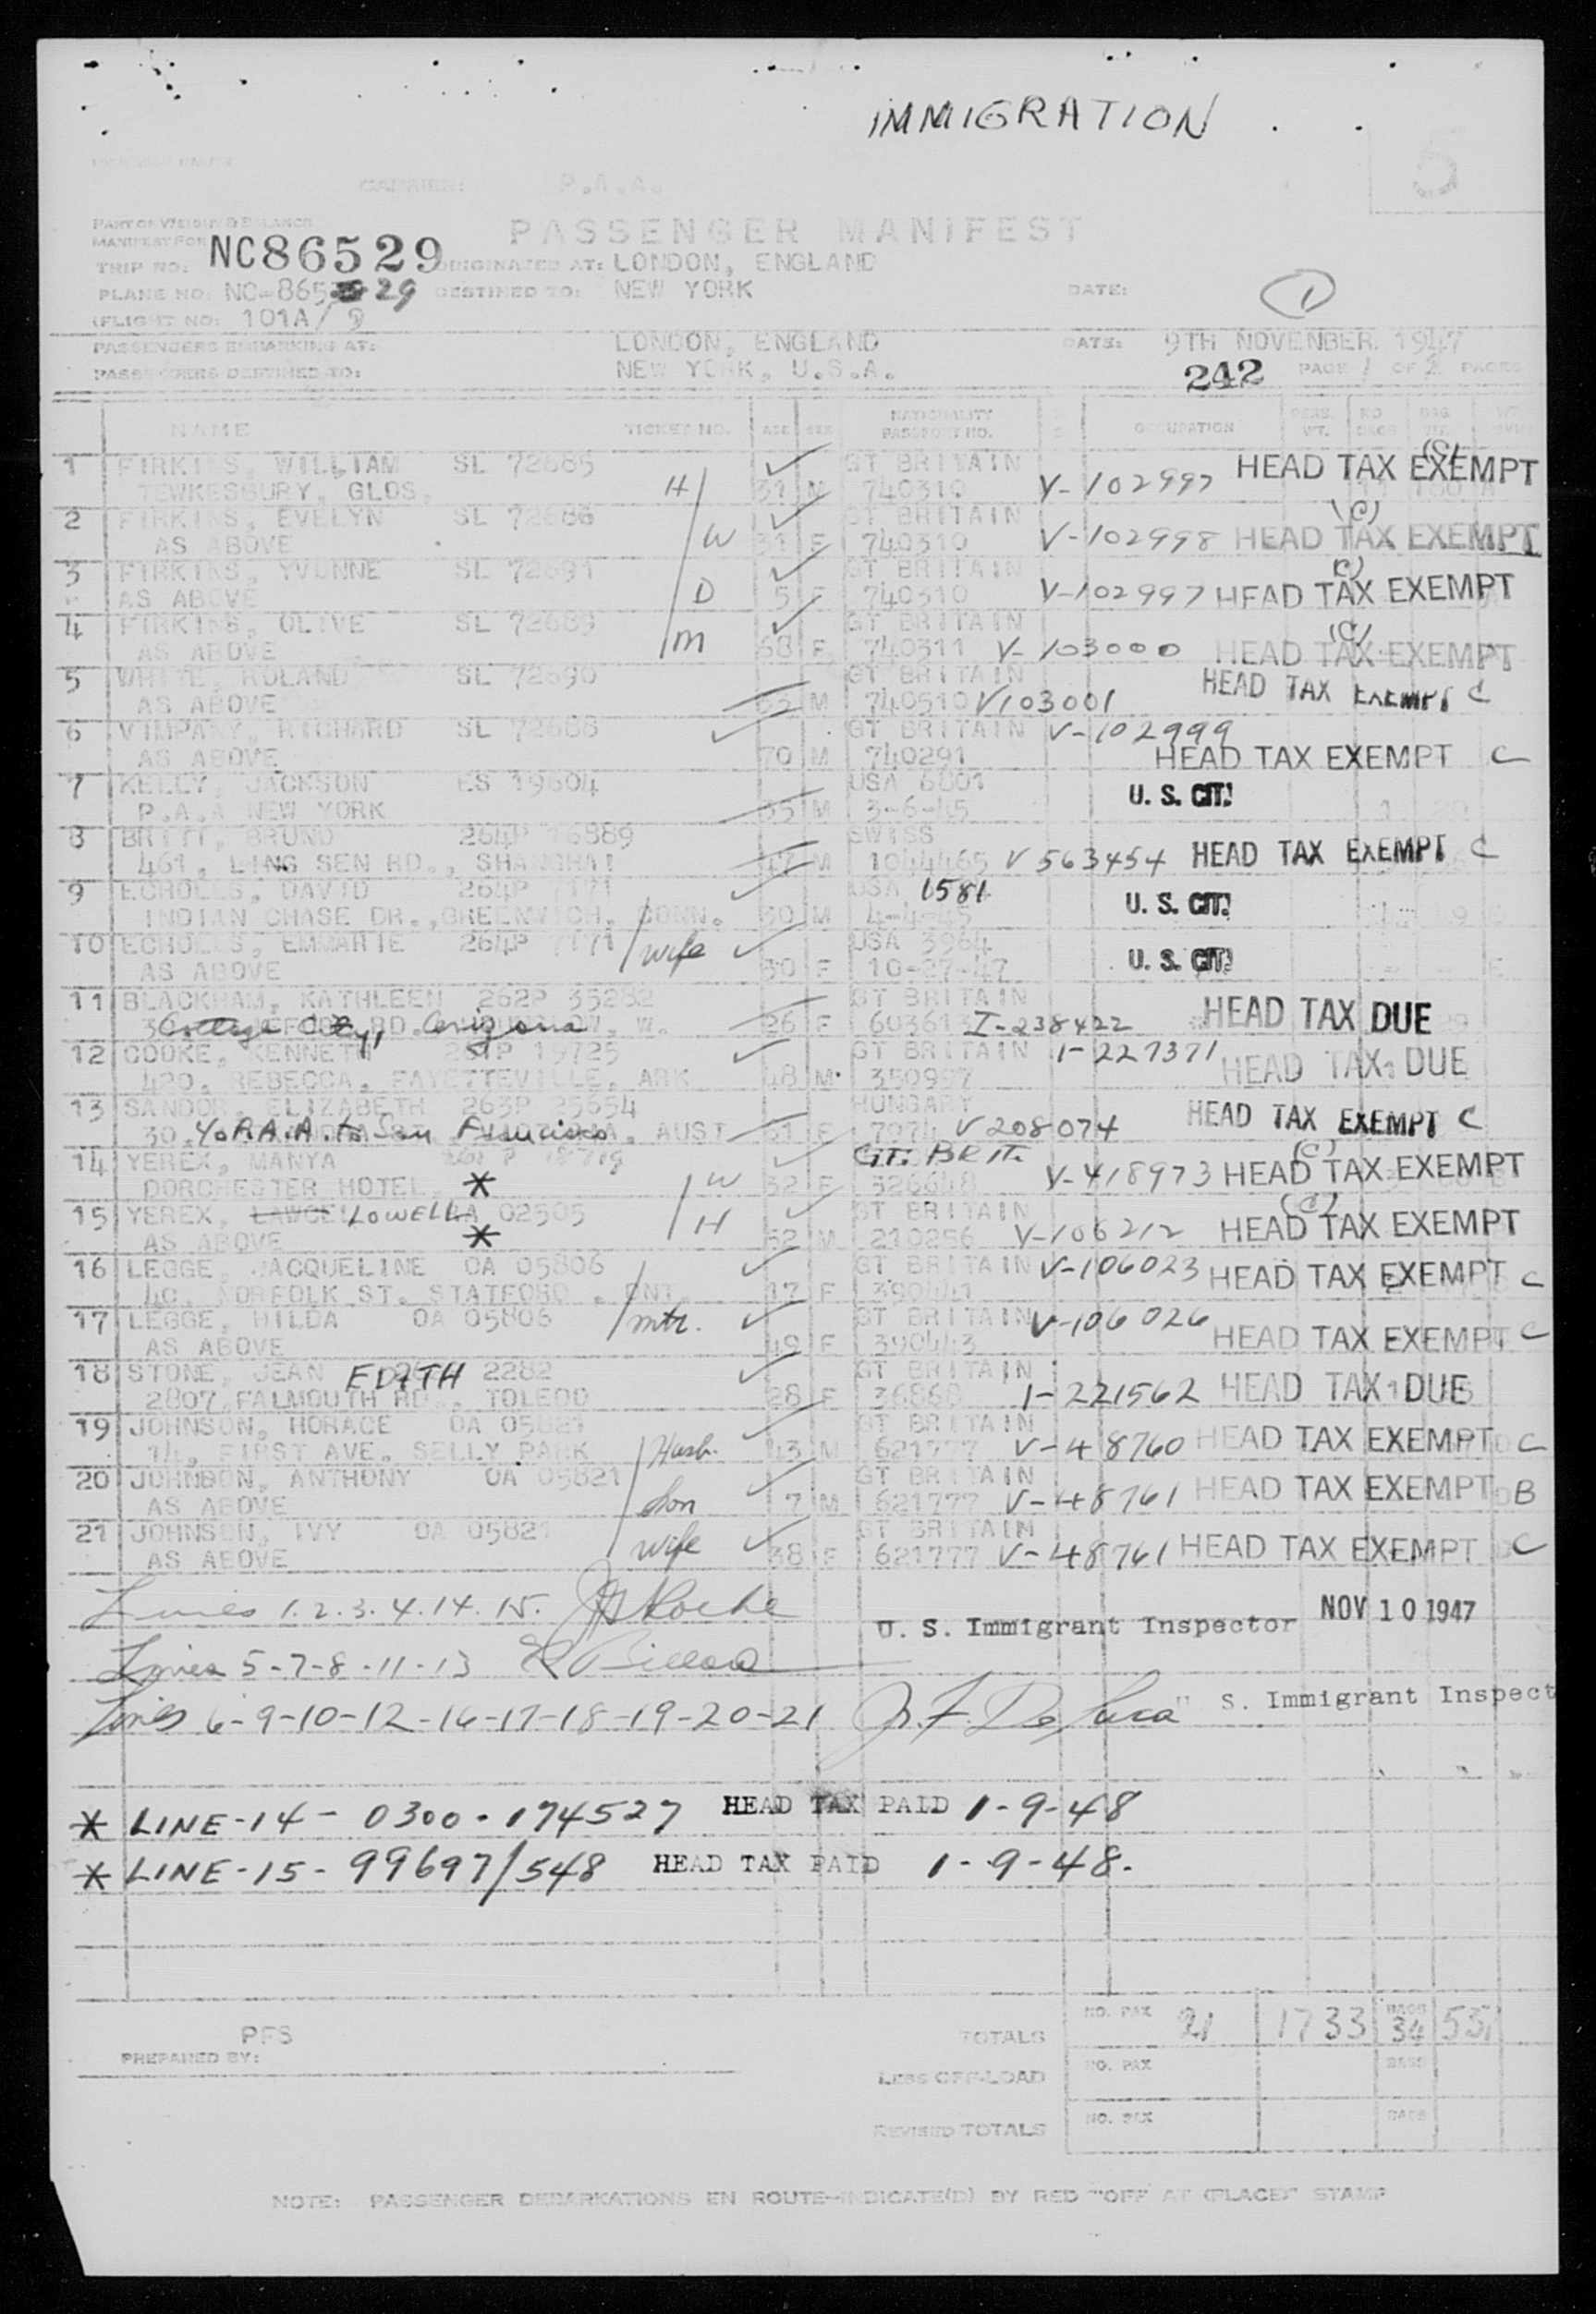 IMMIGRATION
5
CARRIER: P.A.A.
PART OF WEIGHT & BALANCE
PASSENGER MANIFEST
MANIFEST FOR
TRIP NO: NC86529 ORIGINATED AT: LONDON, ENGLAND
PLANE NO: NC-865 29 DESTINED TO: NEW YORK DATE: 1
(FLIGHT NO: 101A/9
PASSENGERS EMBARKING AT: LONDON, ENGLAND DATE: 9TH NOVENBER. 1947
PASSENGERS DESTINED TO: NEW YORK, U.S.A. 242 PAGE 1 OF 2 PAGES
NAME TICKET NO. AGE SEX NATIONALITY PASSPORT NO. OCCUPATION
1 FIRKINS, WILLIAM SL 72685 GT BRITAIN (C)
TEWKESBURY, GLOS. H 31 M 740310 V-102997 HEAD TAX EXEMPT
2 FIRKINS, EVELYN SL 72686 GT BRITAIN (C)
AS ABOVE W 31 F 740310 V-102998 HEAD TAX EXEMPT
3 FIRKINS, YVONNE SL 72691 GT BRITAIN (C)
AS ABOVE D 5 F 740310 V-102997 HEAD TAX EXEMPT
4 FIRKINS, OLIVE SL 72689 GT BRITAIN (C)
AS ABOVE M 68 F 740311 V-103000 HEAD TAX EXEMPT
5 WHITE, ROLAND SL 72690 GT BRITAIN HEAD TAX EXEMPT C
AS ABOVE 63 M 740510 V103001
6 VIMPANY, RICHARD SL 72688 GT BRITAIN V-102999
AS ABOVE 70 M 740291 HEAD TAX EXEMPT C
7 KELLY, JACKSON ES 19604 USA 6801 U. S. CIT.
P.A.A NEW YORK 35 M 3-6-45
8 BRITT, BRUNO 264P 16889 SWISS
461, LING SEN RD., SHANGHAI 47 M 1044465 V563454 HEAD TAX EXEMPT C
9 ECHOLLS, DAVID 264P 7171 USA 1581
INDIAN CHASE DR., GREENWICH, CONN. 30 M 4-4-45 U. S. CIT.
10 ECHOLLS, EMMARIE 264P 7171 wife USA 3964 U. S. CIT.
AS ABOVE 30 F 10-27-47
11 BLACKHAM, KATHLEEN 262P 35282 GT BRITAIN HEAD TAX DUE
RD. Arizona W. 26 F 60361 I-238422
12 COOKE, KENNETH 19725 GT BRITAIN I-227371
420, REBECCA, FAYETTEVILLE, ARK 48 M 350997 HEAD TAX DUE
13 SANDOR, ELIZABETH 263P 25654 HUNGARY HEAD TAX EXEMPT C
30, % P.A.A. to San Francisco, AUST 51 F 7074 V208074
14 YEREX, MANYA GT. BRIT. (C)
DORCHESTER HOTEL * W 32 F 326648 V-418973 HEAD TAX EXEMPT
15 YEREX, LOWELL OA 02505 GT BRITAIN (C)
AS ABOVE * H 52 M 210256 V-106212 HEAD TAX EXEMPT
16 LEGGE, JACQUELINE OA 05806 GT BRITAIN V-106023 HEAD TAX EXEMPT C
40, NORFOLK ST. STATFORD, ONT. 17 F 390441
17 LEGGE, HILDA OA 05806 mtr. GT BRITAIN V-106026
AS ABOVE 49 F 390443 HEAD TAX EXEMPT C
18 STONE, JEAN EDITH 2282 GT BRITAIN
2807 FALMOUTH RD., TOLEDO 28 F 36868 I-221562 HEAD TAX DUE
19 JOHNSON, HORACE OA 05821 GT BRITAIN
14, FIRST AVE. SELLY PARK Husb. 43 M 621777 V-48760 HEAD TAX EXEMPT C
20 JOHNSON, ANTHONY OA 05821 GT BRITAIN
AS ABOVE Son 7 M 621777 V-48761 HEAD TAX EXEMPT B
21 JOHNSON, IVY OA 05821 GT BRITAIN
AS ABOVE wife 38 F 621777 V-48761 HEAD TAX EXEMPT C
Lines 1.2.3.4.14.15. Roche U. S. Immigrant Inspector NOV 10 1947
Lines 5-7-8-11-13
Lines 6-9-10-12-16-17-18-19-20-21 J. F. DeLuca S. Immigrant Inspect
* LINE-14- 0300-174527 HEAD TAX PAID 1-9-48
* LINE-15- 99697/548 HEAD TAX PAID 1-9-48.
PFS TOTALS NO. PAX 21 1733 BAGS 34 551
PREPARED BY:
LESS OFF-LOAD NO. PAX BAGS
REVISED TOTALS NO. PAX BAGS
NOTE: PASSENGER DEBARKATIONS EN ROUTE-INDICATE(D) BY RED "OFF AT (PLACE)" STAMP